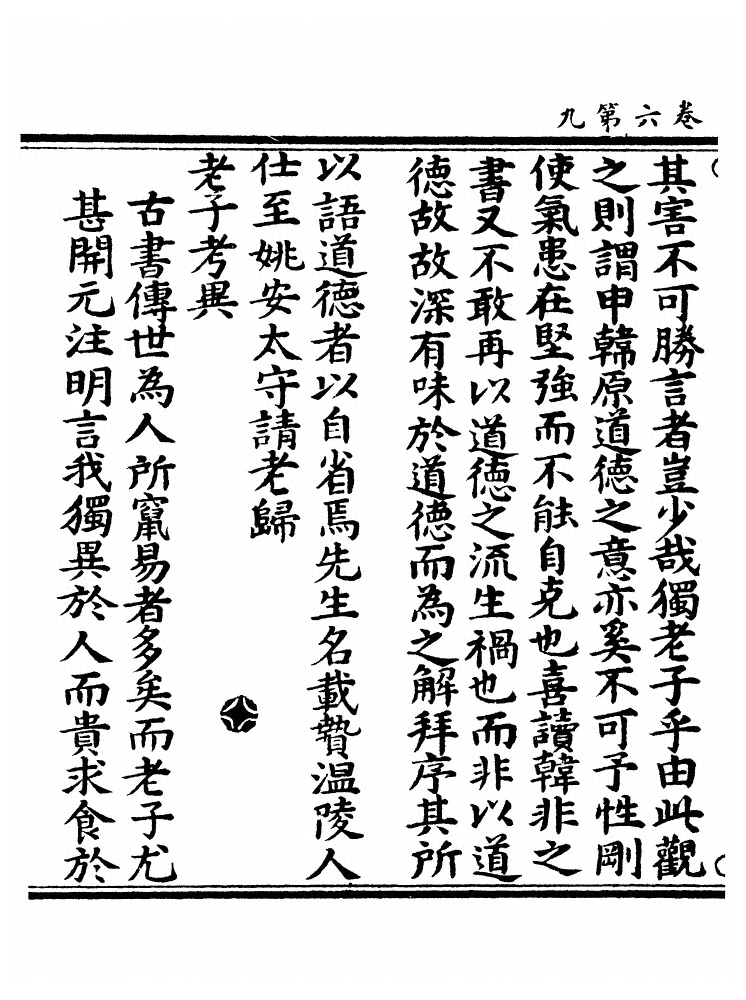 卷六第九
其害不可勝言者豈少哉獨老子乎由此觀
之則謂申韓原道德之意亦奚不可予性剛
使氣患在堅強而不能自克也喜讀韓非之
書又不敢再以道德之流生禍也而非以道
德故故深有味於道德而為之解拜序其所
以語道德者以自省焉先生名載贄温陵人
仕至姚安太守請老歸
老子考異
古書傳世為人所竄易者多矣而老子尤
甚開元注明言我獨異於人而貴求食於